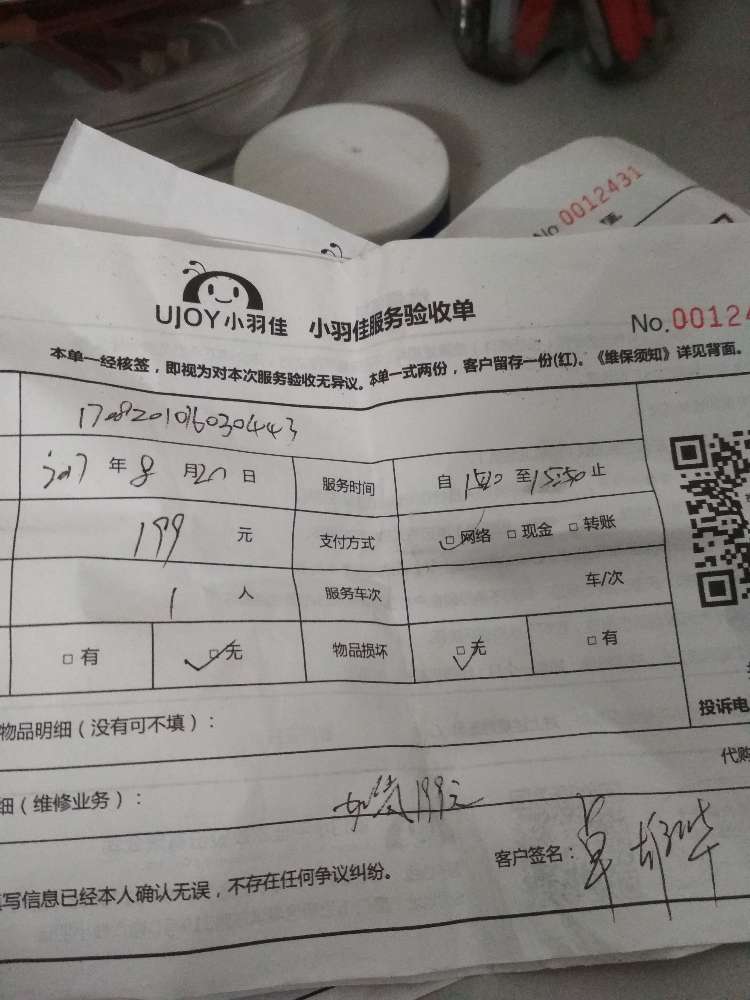 No.0012431
UJOY小羽佳 小羽佳服务验收单
No.00124
本单一经核签，即视为对本次服务验收无异议。本单一式两份，客户留存一份(红)。《维保须知》详见背面。
1708201016030443
2017年8月20日 服务时间 自 至15:50止
199元 支付方式 □网络 □现金 □转账
1人 服务车次 车/次
□有 □无 物品损坏 □无 □有
物品明细（没有可不填）：
投诉电
代购
细（维修业务）： 加氟199元
客户签名：
填写信息已经本人确认无误，不存在任何争议纠纷。